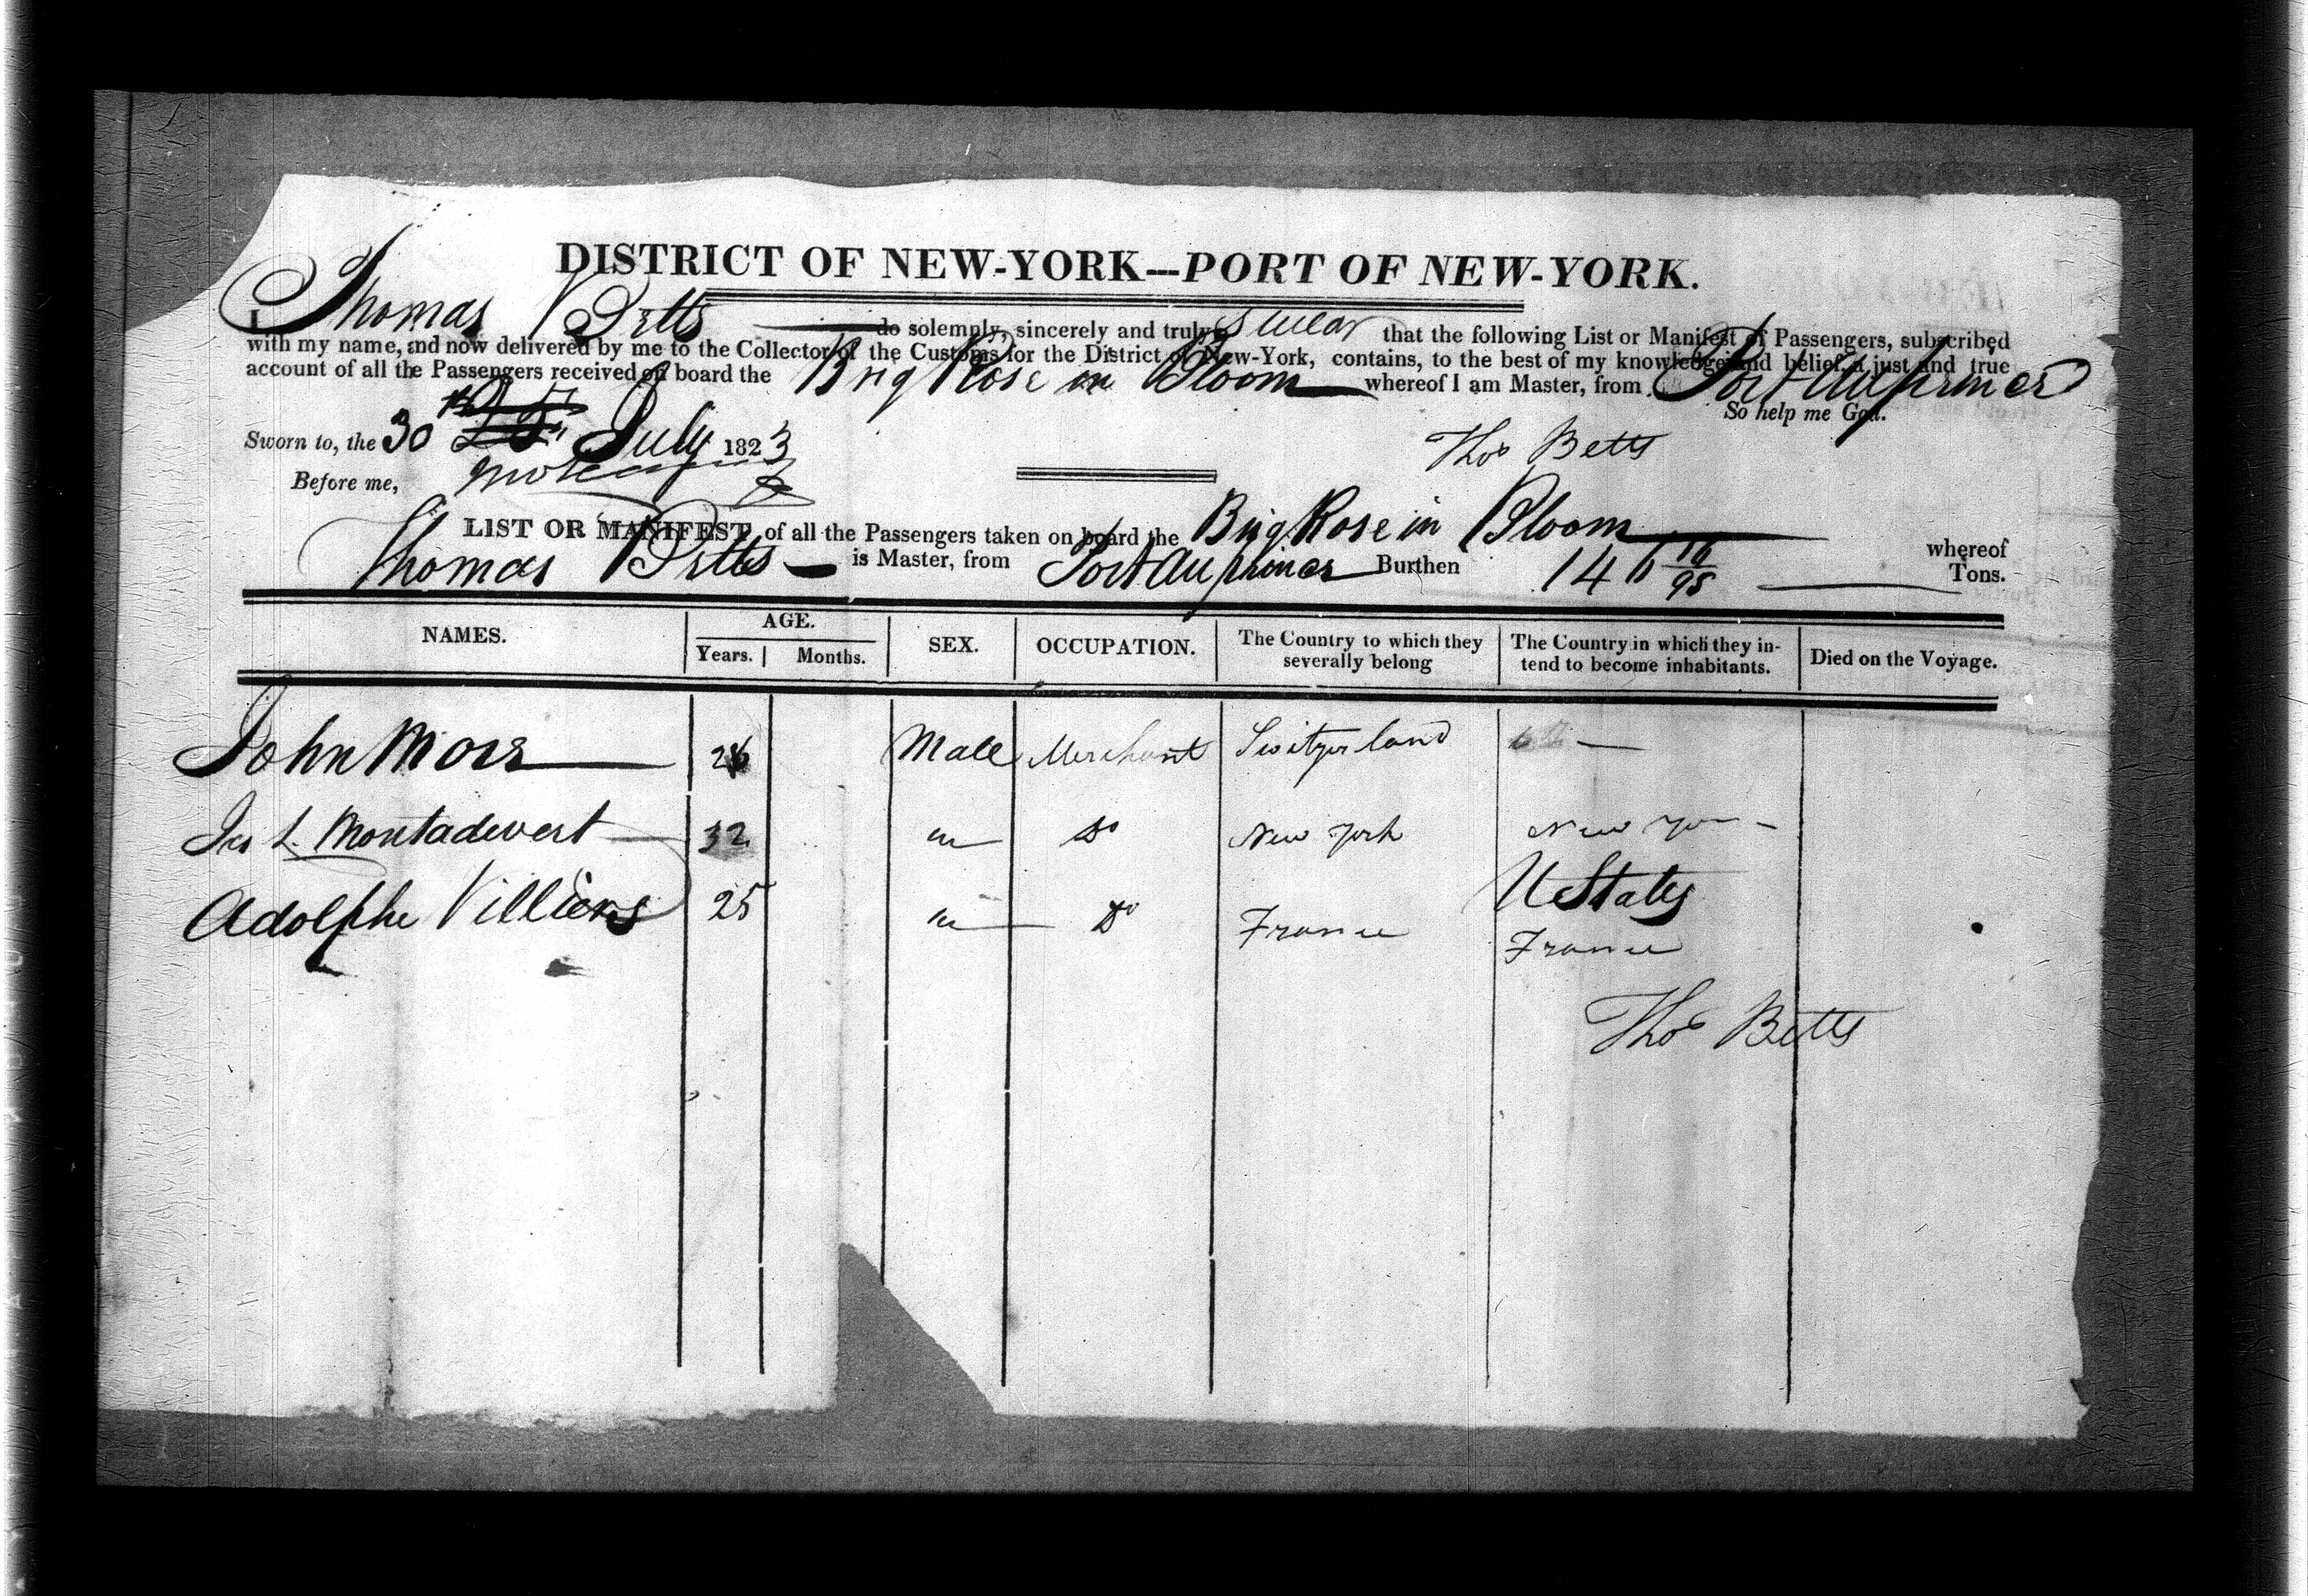 DISTRICT OF NEW-YORK---PORT OF NEW-YORK.
I, Thomas Betts do solemnly, sincerely and truly swear that the following List or Manifest of Passengers, subscribed
with my name, and now delivered by me to the Collector of the Customs for the District of New-York, contains, to the best of my knowledge and belief, a just and true
account of all the Passengers received on board the Brig Rose in Bloom whereof I am Master, from Port au prince
So help me God.
Sworn to, the 30 July 1823
Thos Betts
Before me,
LIST OR MANIFEST, of all the Passengers taken on board the Brig Rose in Bloom whereof
Thomas Betts is Master, from Port au prince Burthen 146 16/95 Tons.
NAMES. AGE. SEX. OCCUPATION. The Country to which they severally belong The Country in which they intend to become inhabitants. Died on the Voyage.
Years. Months.
John Moss 26 Male Merchant Switzerland
L. Montadevert 32 Do New York New York
U States
Adolphe Villiers 25 Do France France
Thos Betts